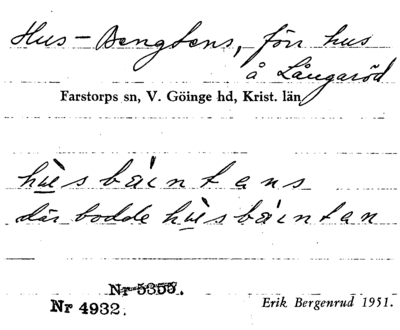 Hus-Bengtens, förr hus
å Långaröd
Farstorps sn, V. Göinge hd, Krist. län
hùs bäintens
där bodde hùs bäintan
Nr 5355.
Nr 4932.
Erik Bergenrud 1951.